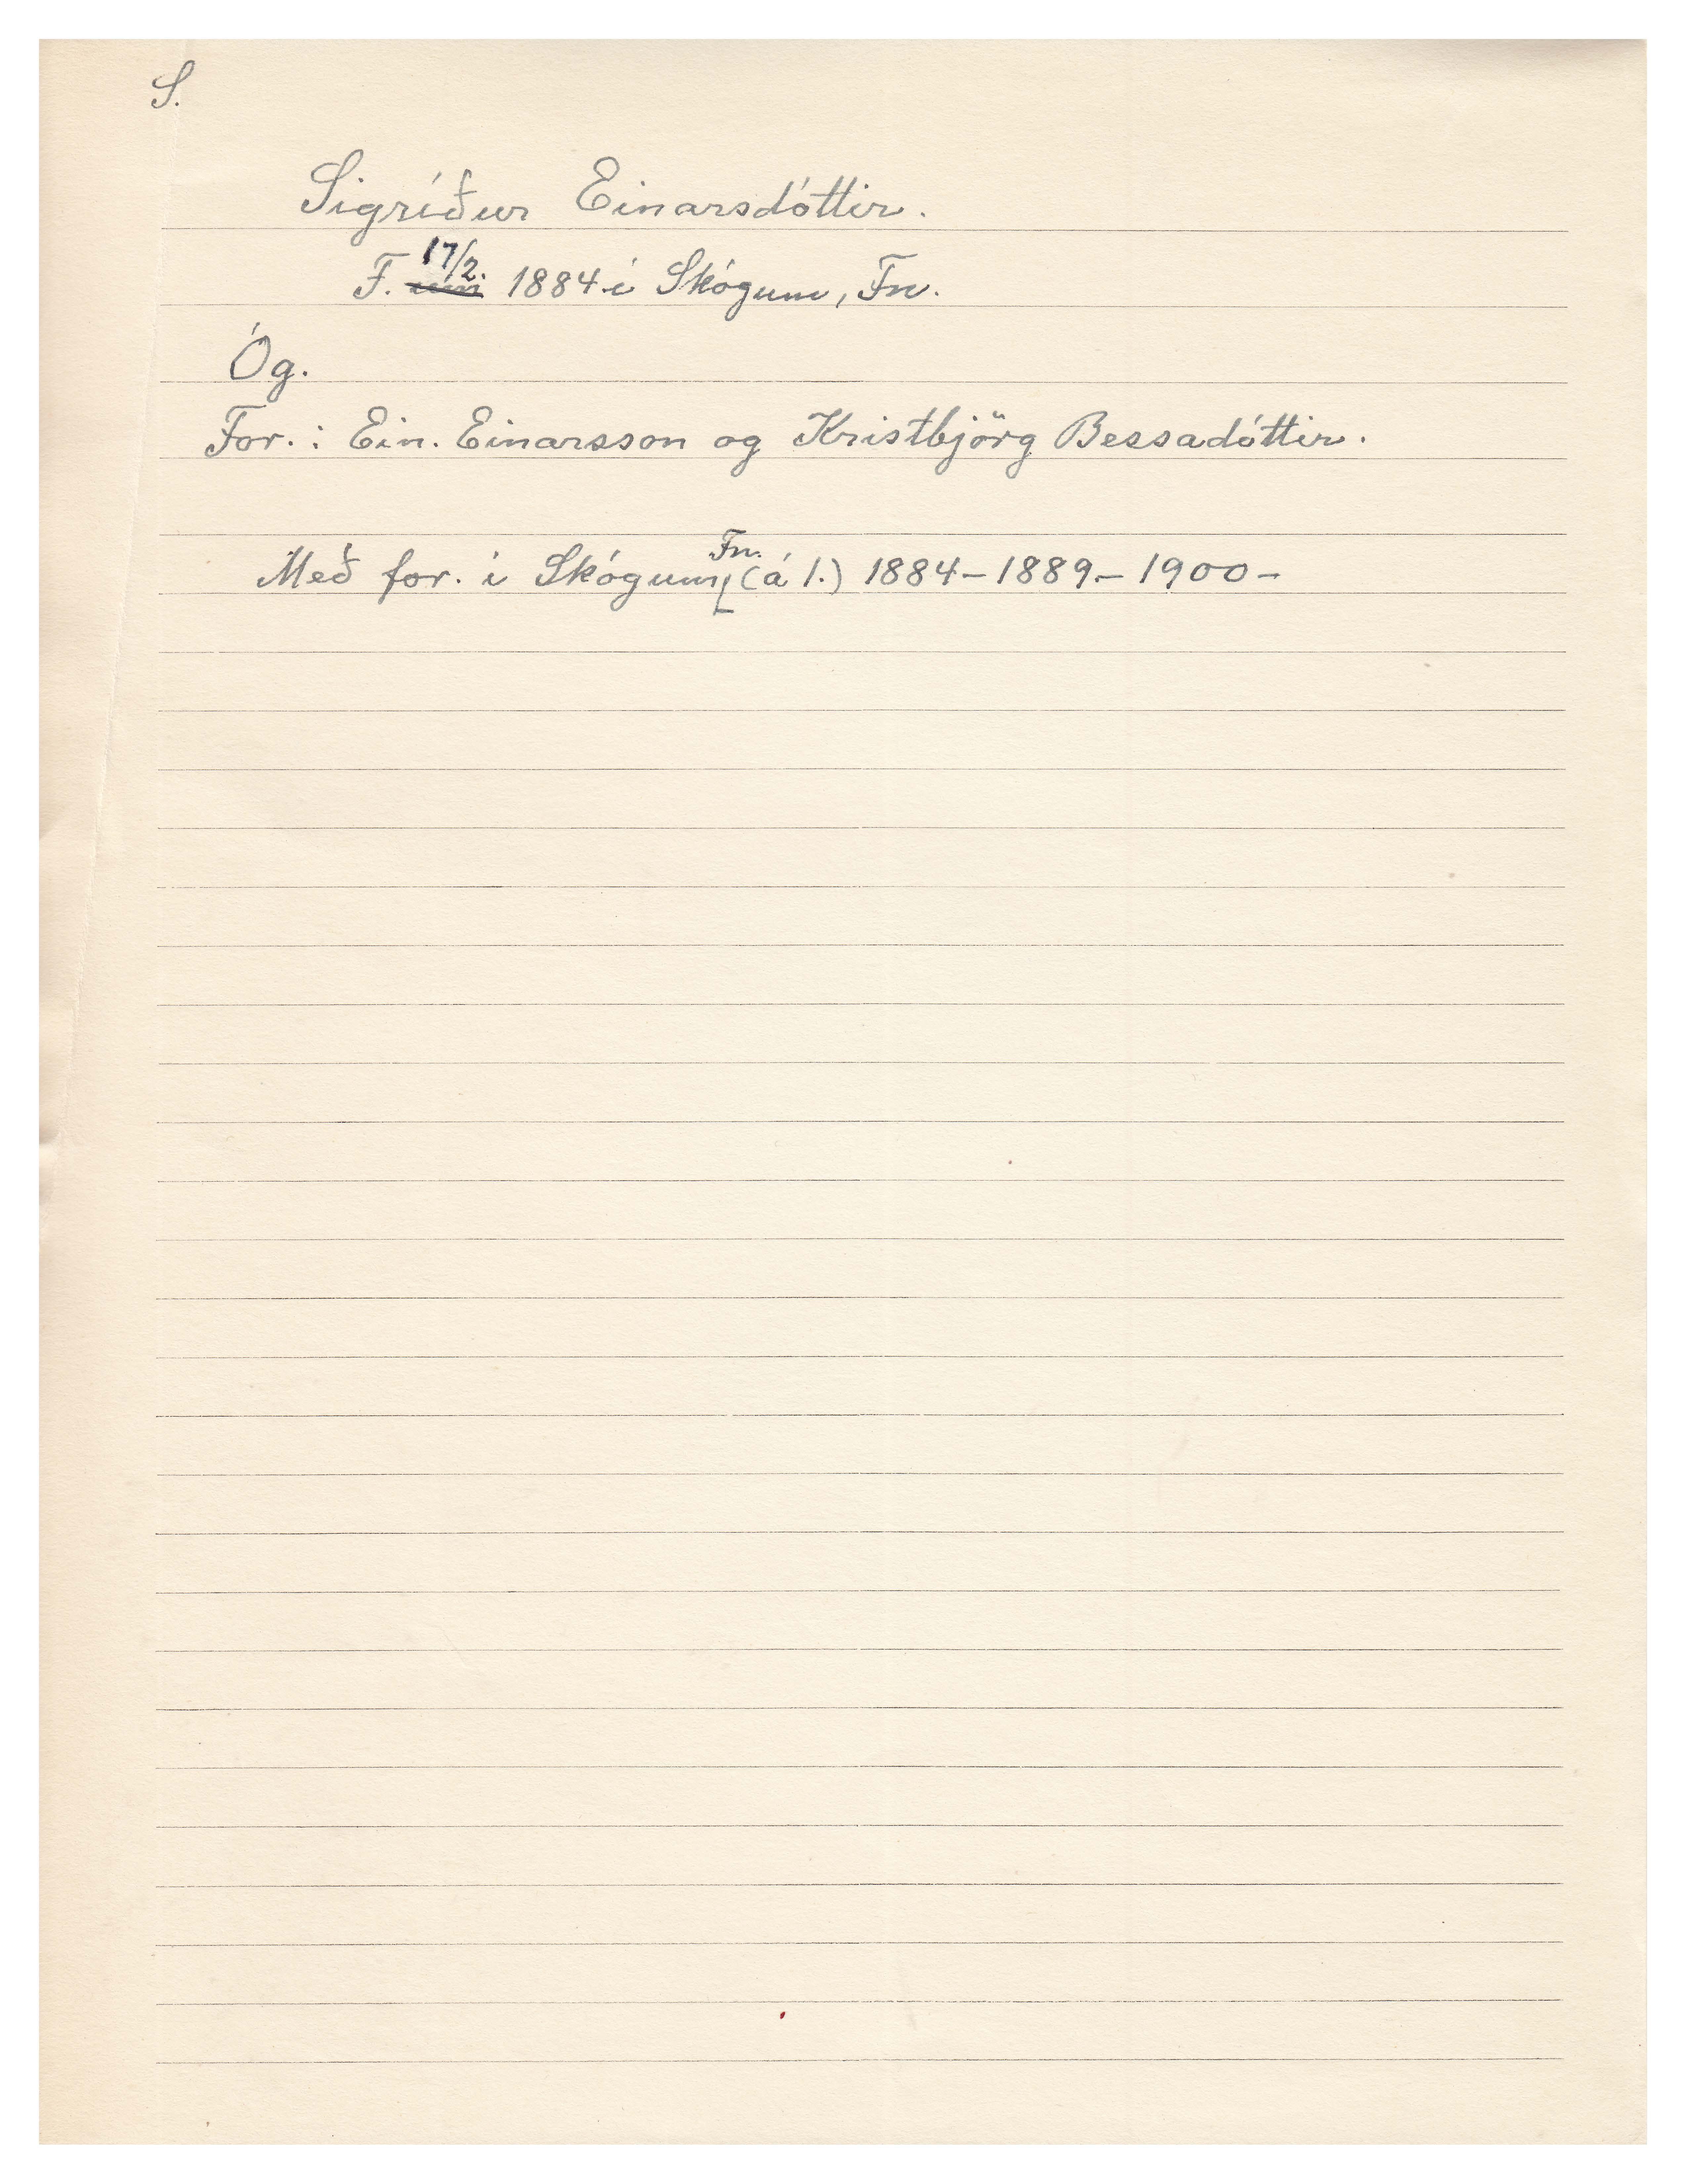 S.
Sigríður Einarsdóttir.
F. 17/2. 1884 í Skógum, Fn.
Óg.
For.: Ein. Einarsson og Kristbjörg Bessadóttir.
Með for. í Skógum, Fn. (á 1.) 1884-1889-1900-